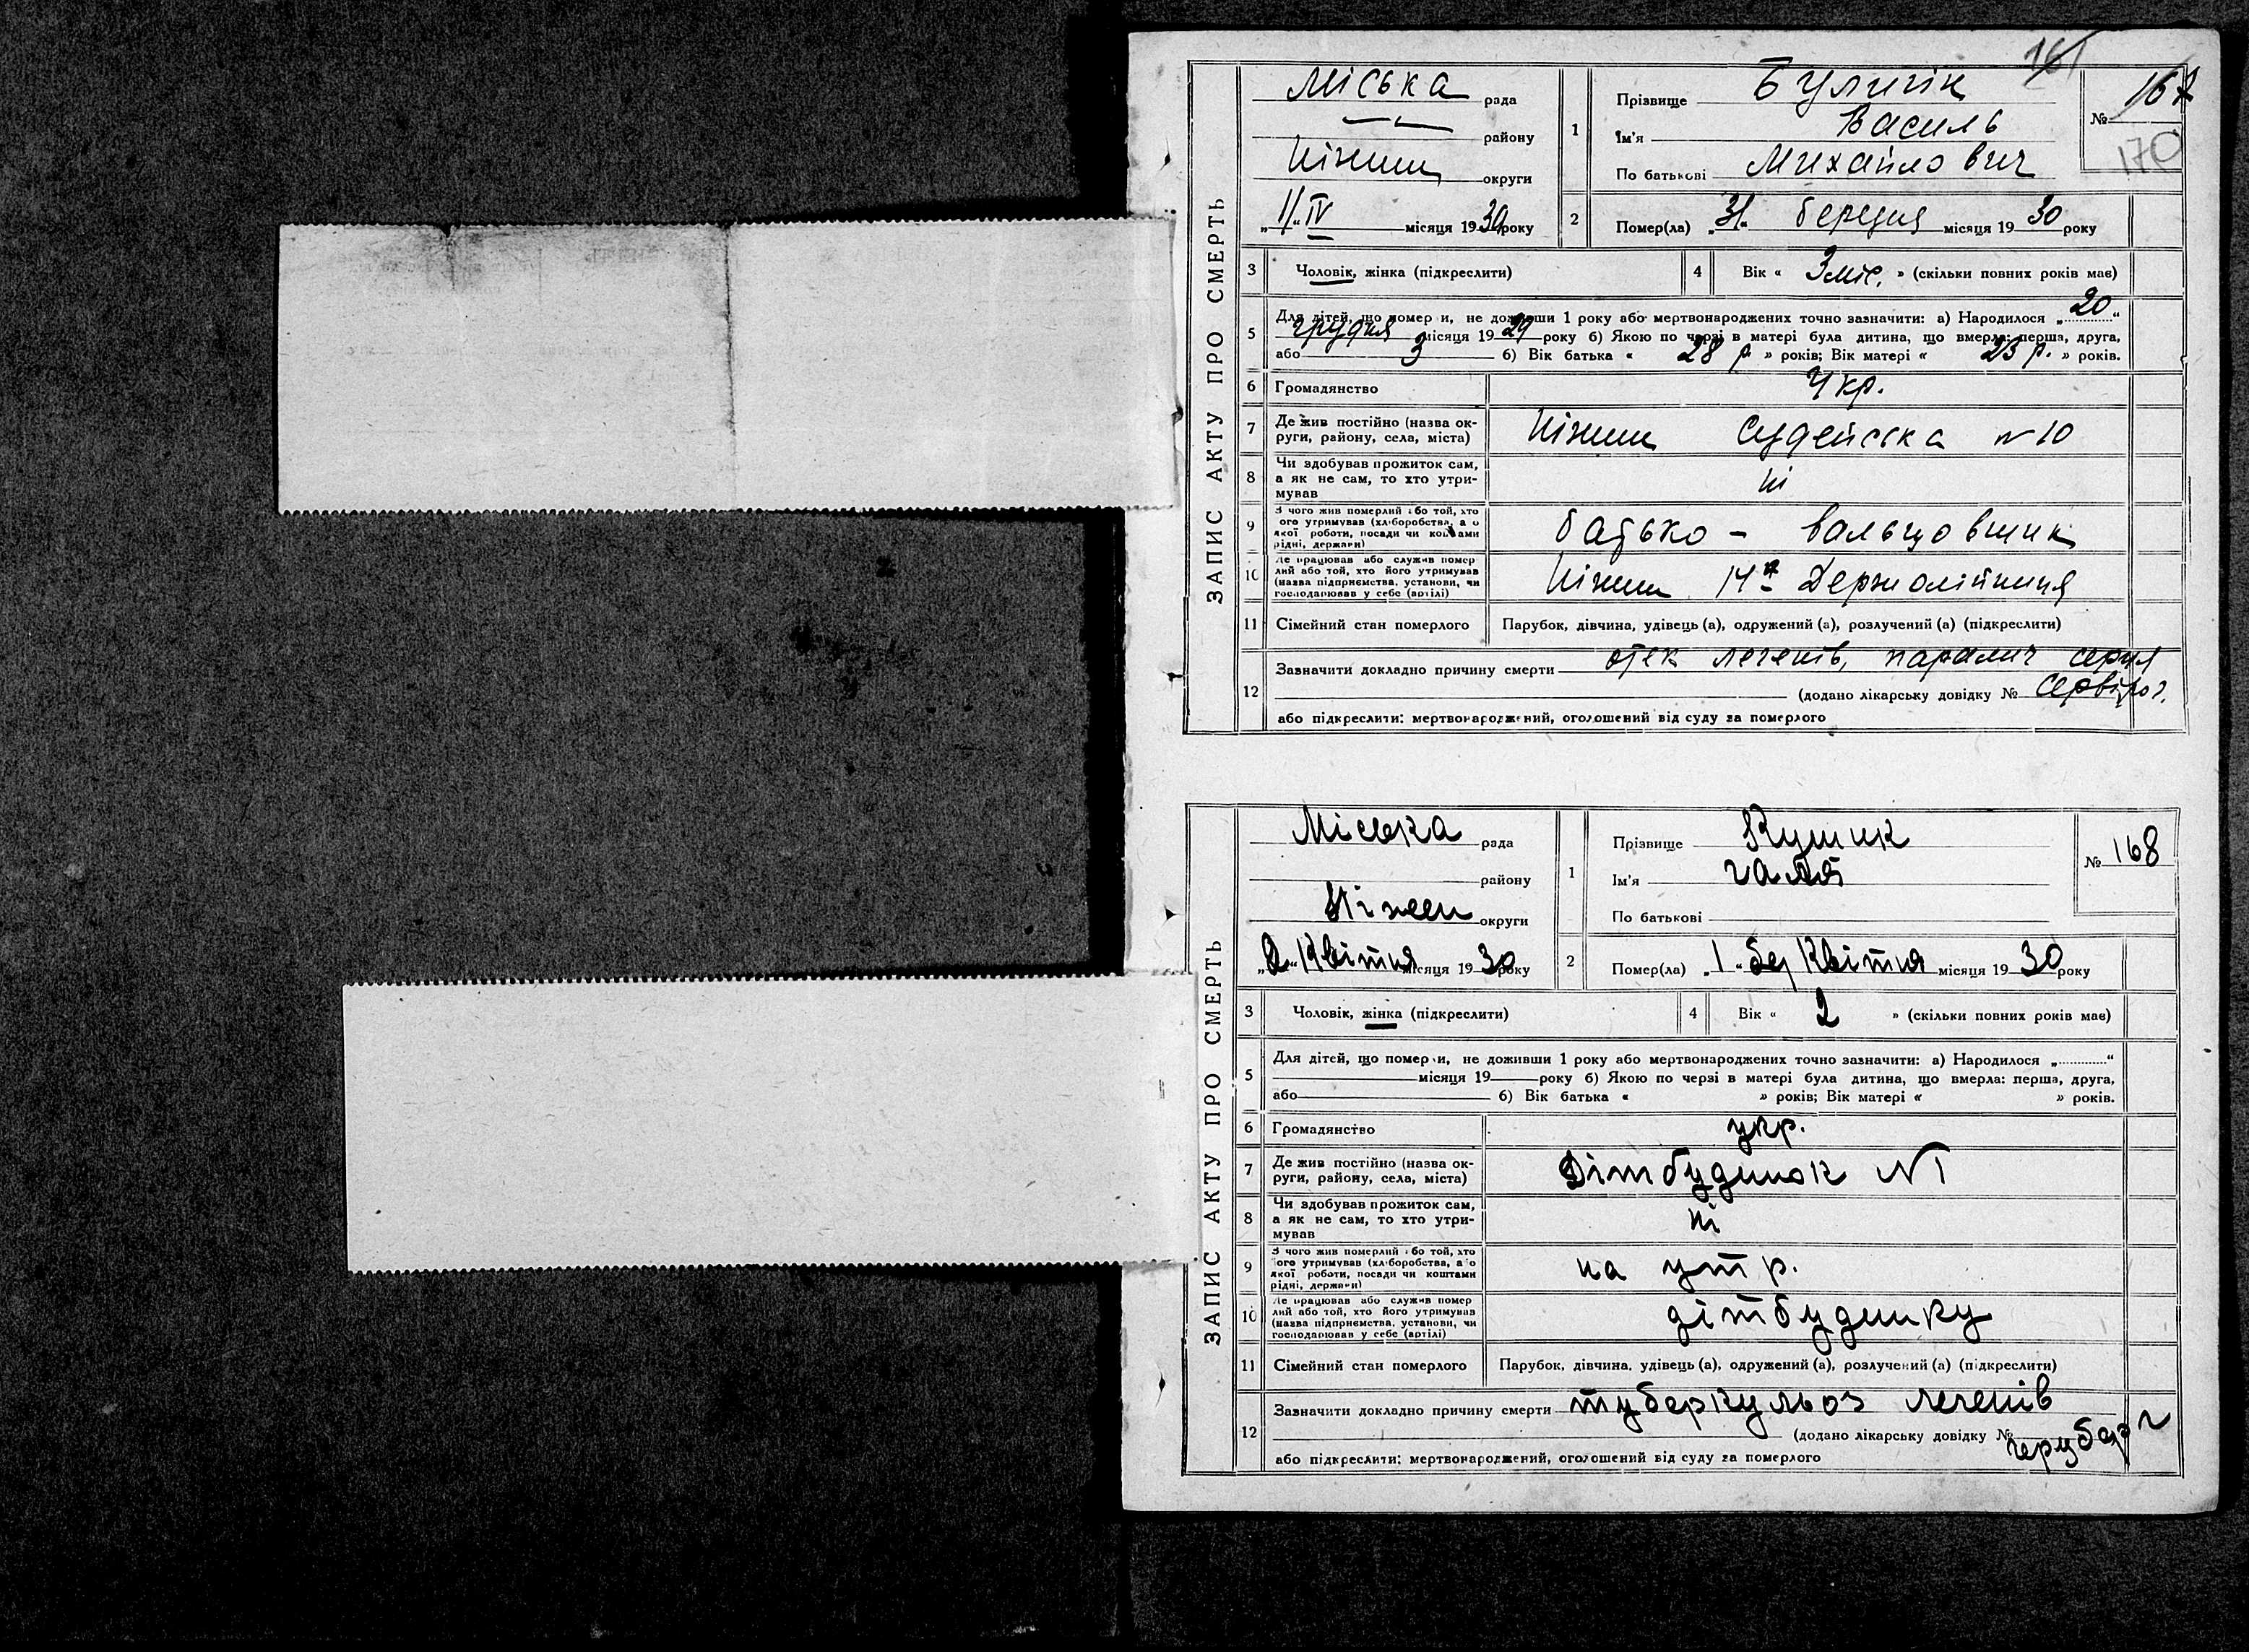 ЗАПИС АКТУ ПРО СМЕРТЬ
Міська рада
району
Ніжин округи
„ІІ“ IV місяця 1930 року
1
Прізвище Булигін
Ім'я Василь
По батькові Михайлович
№ 167
170
161
2
Помер(ла) „31“ березня місяця 1930 року
3 Чоловік, жінка (підкреслити)
4 Вік « 3 міс. » (скільки повних років має)
5 Для дітей, що померли, не доживши 1 року або мертвонароджених точно зазначити: а) Народилося „20“
грудня місяця 1929 року б) Якою по черзі в матері була дитина, що вмерла: перша, друга,
або 3 б) Вік батька « 28 р. » років; Вік матері « 23 р. » років.
6 Громадянство Укр.
7 Де жив постійно (назва округи, району, села, міста) Ніжин Судейська № 10
8 Чи здобував прожиток сам, а як не сам, то хто утримував ні
9 З чого жив померлий або той, хто ого утримував (хліборобства, а о якої роботи, посади чи коштами рідні, держави) батько – вальцовщик
10 Де працював або служив помер лий або той, хто його утримував (назва підприємства, установи, чи господарював у себе (артілі) Ніжин 14а Держолійниця
11 Сімейний стан померлого Парубок, дівчина, удівець (а), одружений (а), розлучений (а) (підкреслити)
12 Зазначити докладно причину смерти отек легенів, параліч серця
(додано лікарську довідку №
або підкреслити: мертвонароджений, оголошений від суду за померлого
ЗАПИС АКТУ ПРО СМЕРТЬ
Міська рада
району
Ніжен округи
„2“ Квітня місяця 1930 року
1
Прізвище Кушик
Ім'я Галя
По батькові
№ 168
2
Помер(ла) „1“ бер Квітня місяця 1930 року
3 Чоловік, жінка (підкреслити)
4 Вік « 2 » (скільки повних років має)
5 Для дітей, що померли, не доживши 1 року або мертвонароджених точно зазначити: а) Народилося „ “
місяця 19 року б) Якою по черзі в матері була дитина, що вмерла: перша, друга,
або б) Вік батька « » років; Вік матері « » років.
6 Громадянство укр.
7 Де жив постійно (назва округи, району, села, міста) Дітбудинок №1
8 Чи здобував прожиток сам, а як не сам, то хто утримував ні
9 З чого жив померлий або той, хто ого утримував (хліборобства, а о якої роботи, посади чи коштами рідні, держави) на утр.
10 Де працював або служив помер лий або той, хто його утримував (назва підприємства, установи, чи господарював у себе (артілі) дітбудинку
11 Сімейний стан померлого Парубок, дівчина, удівець (а), одружений (а), розлучений (а) (підкреслити)
12 Зазначити докладно причину смерти туберкульоз легенів
(додано лікарську довідку №
або підкреслити: мертвонароджений, оголошений від суду за померлого